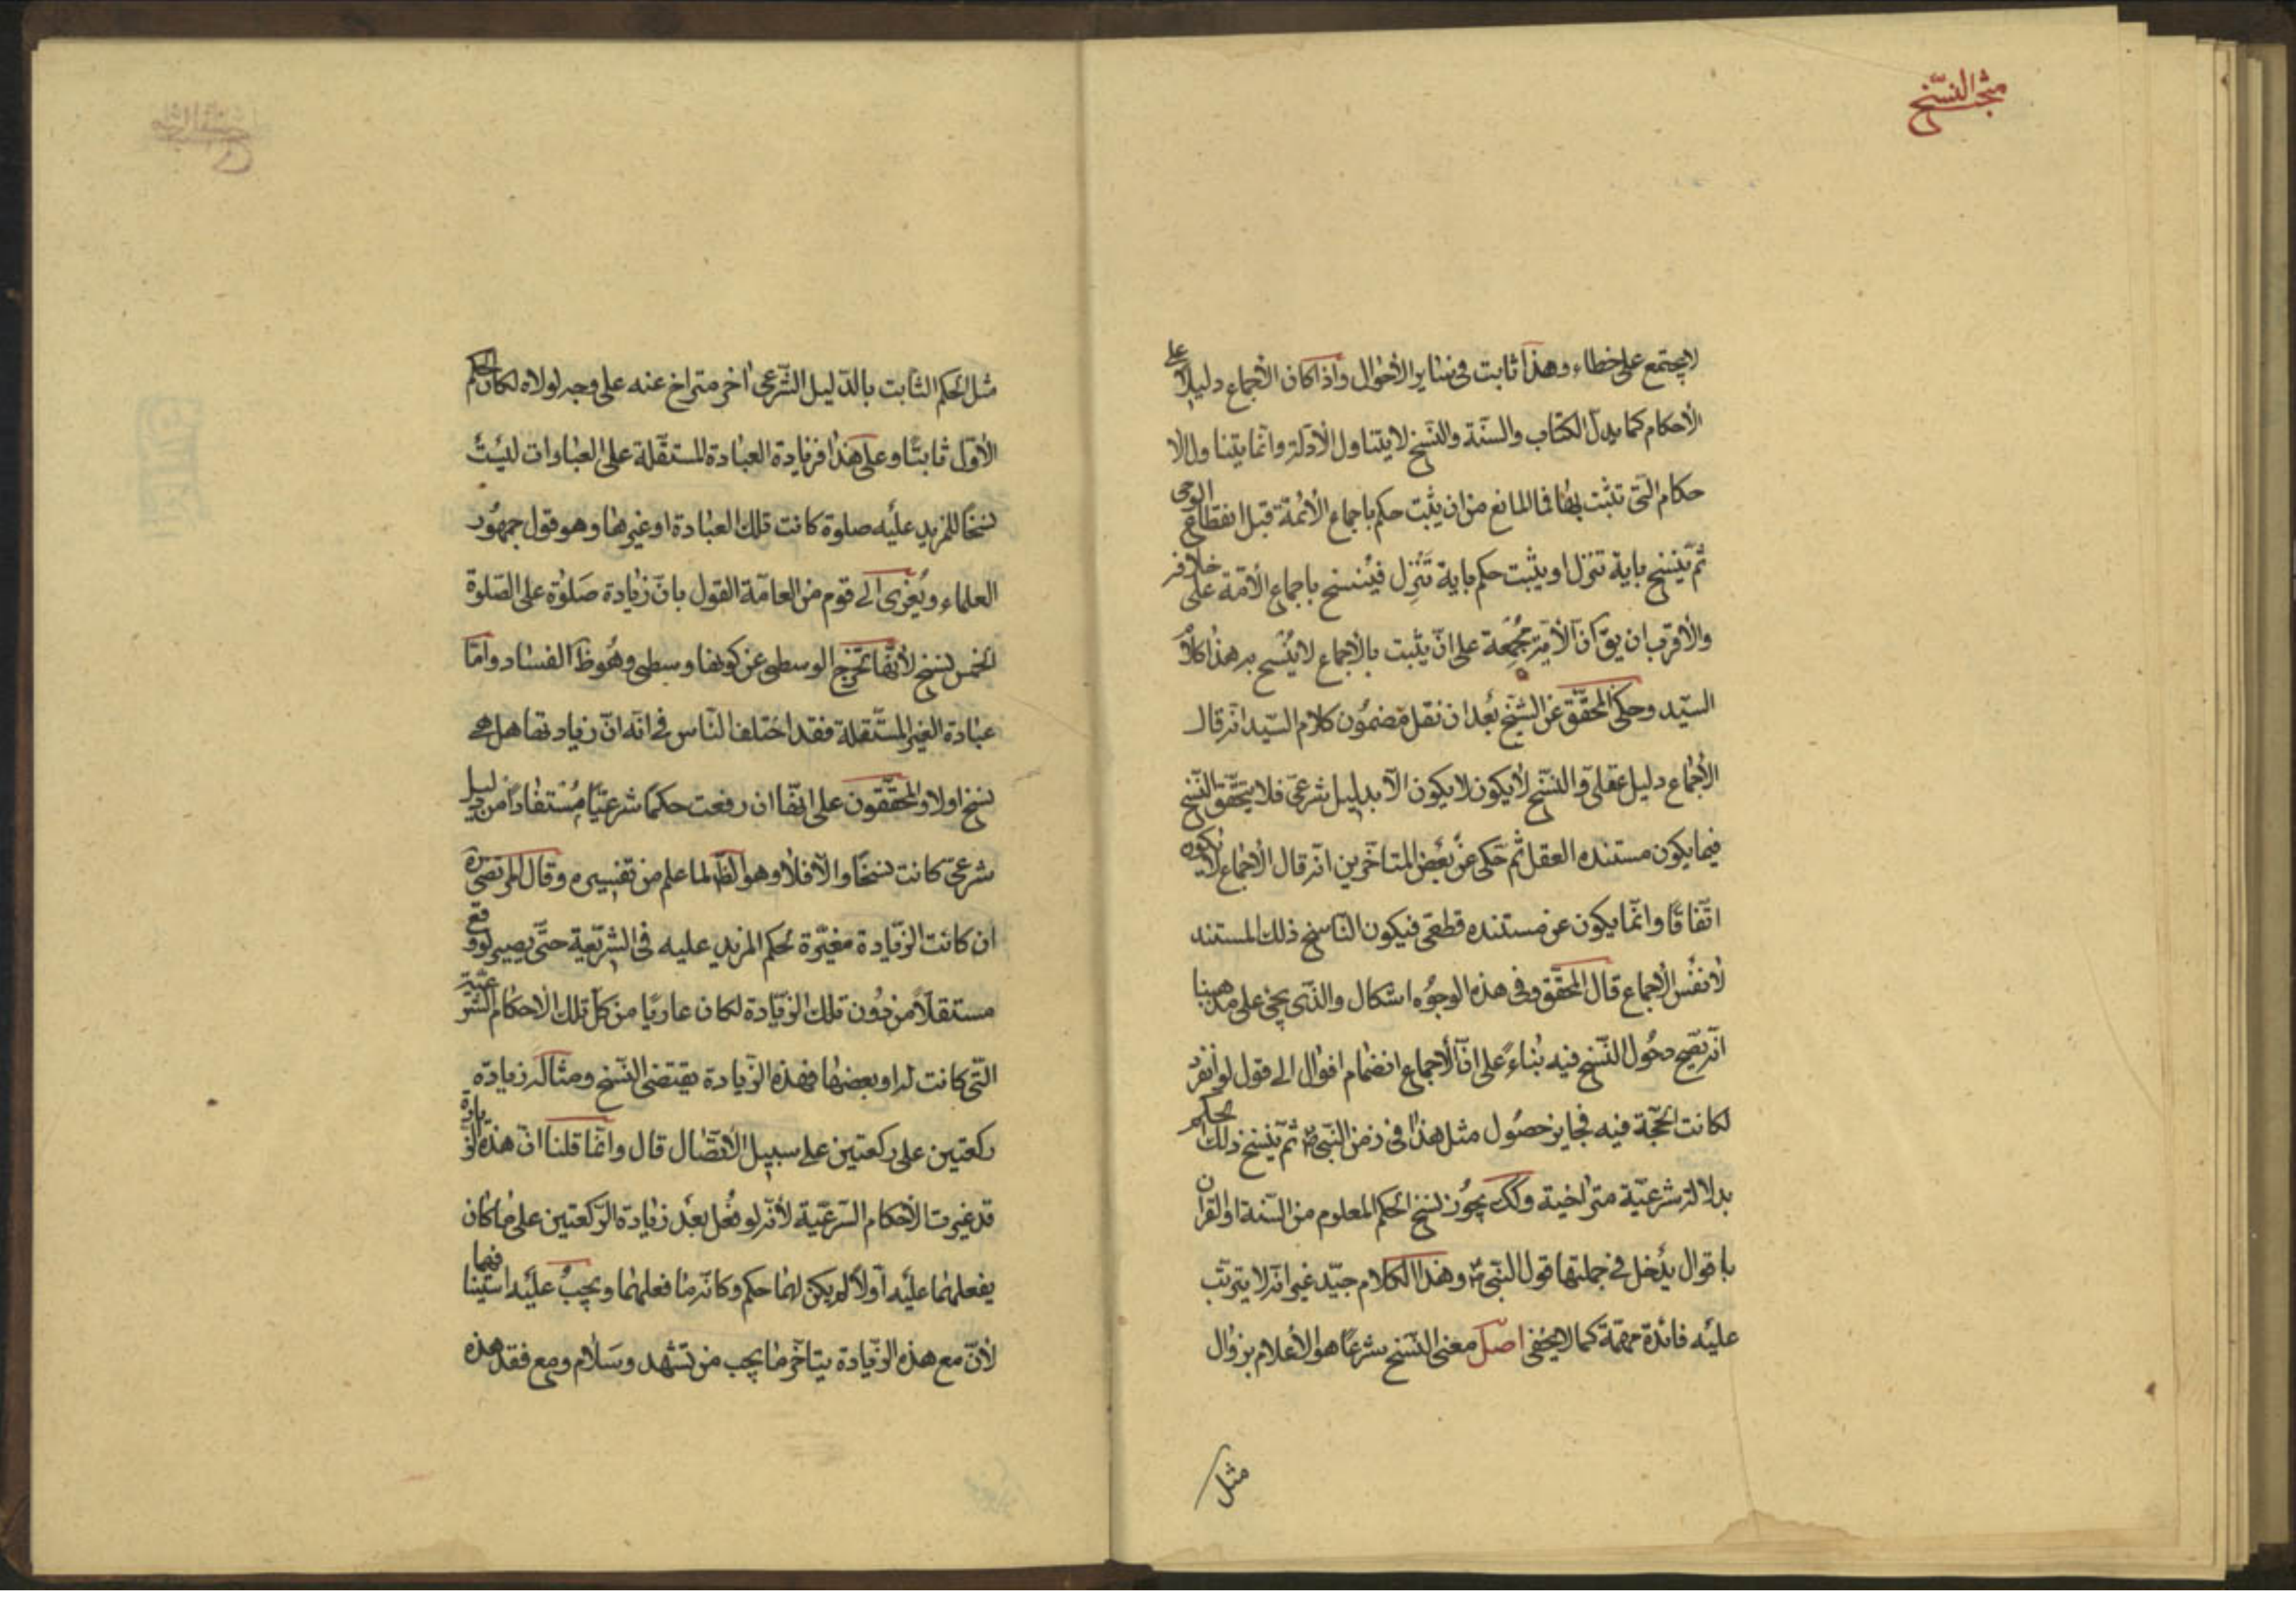 مبحث النسخ
لا يجتمع على خطاء وهذا ثابت فى ساير الأحوال واذا كان الأجماع دليلا على
الأحكام كما يدل الكتاب والسنة والنسخ لا يتناول الأدلة وانما يتناول الا
حكام التى تثبت بها فما المانع من ان يثبت حكم باجماع الأئمة قبل انقطاع الوحى
ثم ينسخ باية تنزل او يثبت حكم باية تنزل فينسخ باجماع الأمة على خلافه
والأقرب ان يق ان الأمة مجمعة على ان يثبت بالأجماع لا ينسخ به هذا كلام
السيد وحكى المحقق عن الشيخ بعد ان نقل مضمون كلام السيد انه قال
الأجماع دليل عقلى والنسخ لا يكون لا يكون الا بدليل شرعى فلا يتحقق النسخ
فيما يكون مستنده العقل ثم حكى عن بعض المتاخرين انه قال الأجماع لا يكون
اتفاقا وانما يكون عن مستنده قطعى فيكون الناسخ ذلك المستند
لا نفس الأجماع قال المحقق وفى هذه الوجوه اشكال والذى يجئ على مذهبنا
انه يصح دخول النسخ فيه بناء على ان الأجماع انضمام اقوال الى قول لو انفرد
لكانت الحجة فيه فجايز حصول مثل هذا فى زمن النبى ص ثم ينسخ ذلك الحكم
بدلالة شرعية متراخية وكك يجوز نسخ الحكم المعلوم من السنة او القران
باقوال يدخل فى جملتها قول النبى ص وهذا الكلام جيد غير انه لا يترتب
عليه فائدة مهمة كما لا يخفى اصل معنى النسخ شرعا هو الأعلام بزوال
مثل
مثل الحكم الثابت بالدليل الشرعى اخر متراخ عنه على وجه لولاه لكان الحكم
الأول ثابتا وعلى هذا فزيادة العبادة المستقلة على العبادات ليست
نسخا للمزيد عليه صلوة كانت تلك العبادة او غيرها وهو قول جمهور
العلماء ويعزى الى قوم من العامة القول بان زيادة صلوة على الصلوة
الخمس نسخ لأنها تخرج الوسطى عن كونها وسطى وهو ظ الفساد واما
عبادة الغير المستقلة فقد اختلف الناس فى انه ان زيادتها هل هى
نسخ او لا والمحققون على انها ان رفعت حكما شرعيا مستفادا من دليل
شرعى كانت نسخا والا فلا وهو الظ لما علم من تفسيره وقال المرتضى ره
ان كانت الزيادة مغيرة لحكم المزيد عليه فى الشريعة حتى يصير لو وقع
مستقلا من دون تلك الزيادة لكان عاريا من كل تلك الاحكام الشرعية
التى كانت له او بعضها فهذه الزيادة يقتضى النسخ ومثاله زيادة
ركعتين على ركعتين على سبيل الأتصال قال وانما قلنا ان هذه الزيادة
قد غيرت الأحكام الشرعية لأنه لو فعل بعد زيادة الركعتين على ما كان
يفعلهما عليه اولا لم يكن لهما حكم وكانه ما فعلهما ويجب عليه استينافهما
لأن مع هذه الزيادة يتاخر ما يجب من تشهد وسلام ومع فقد هذه